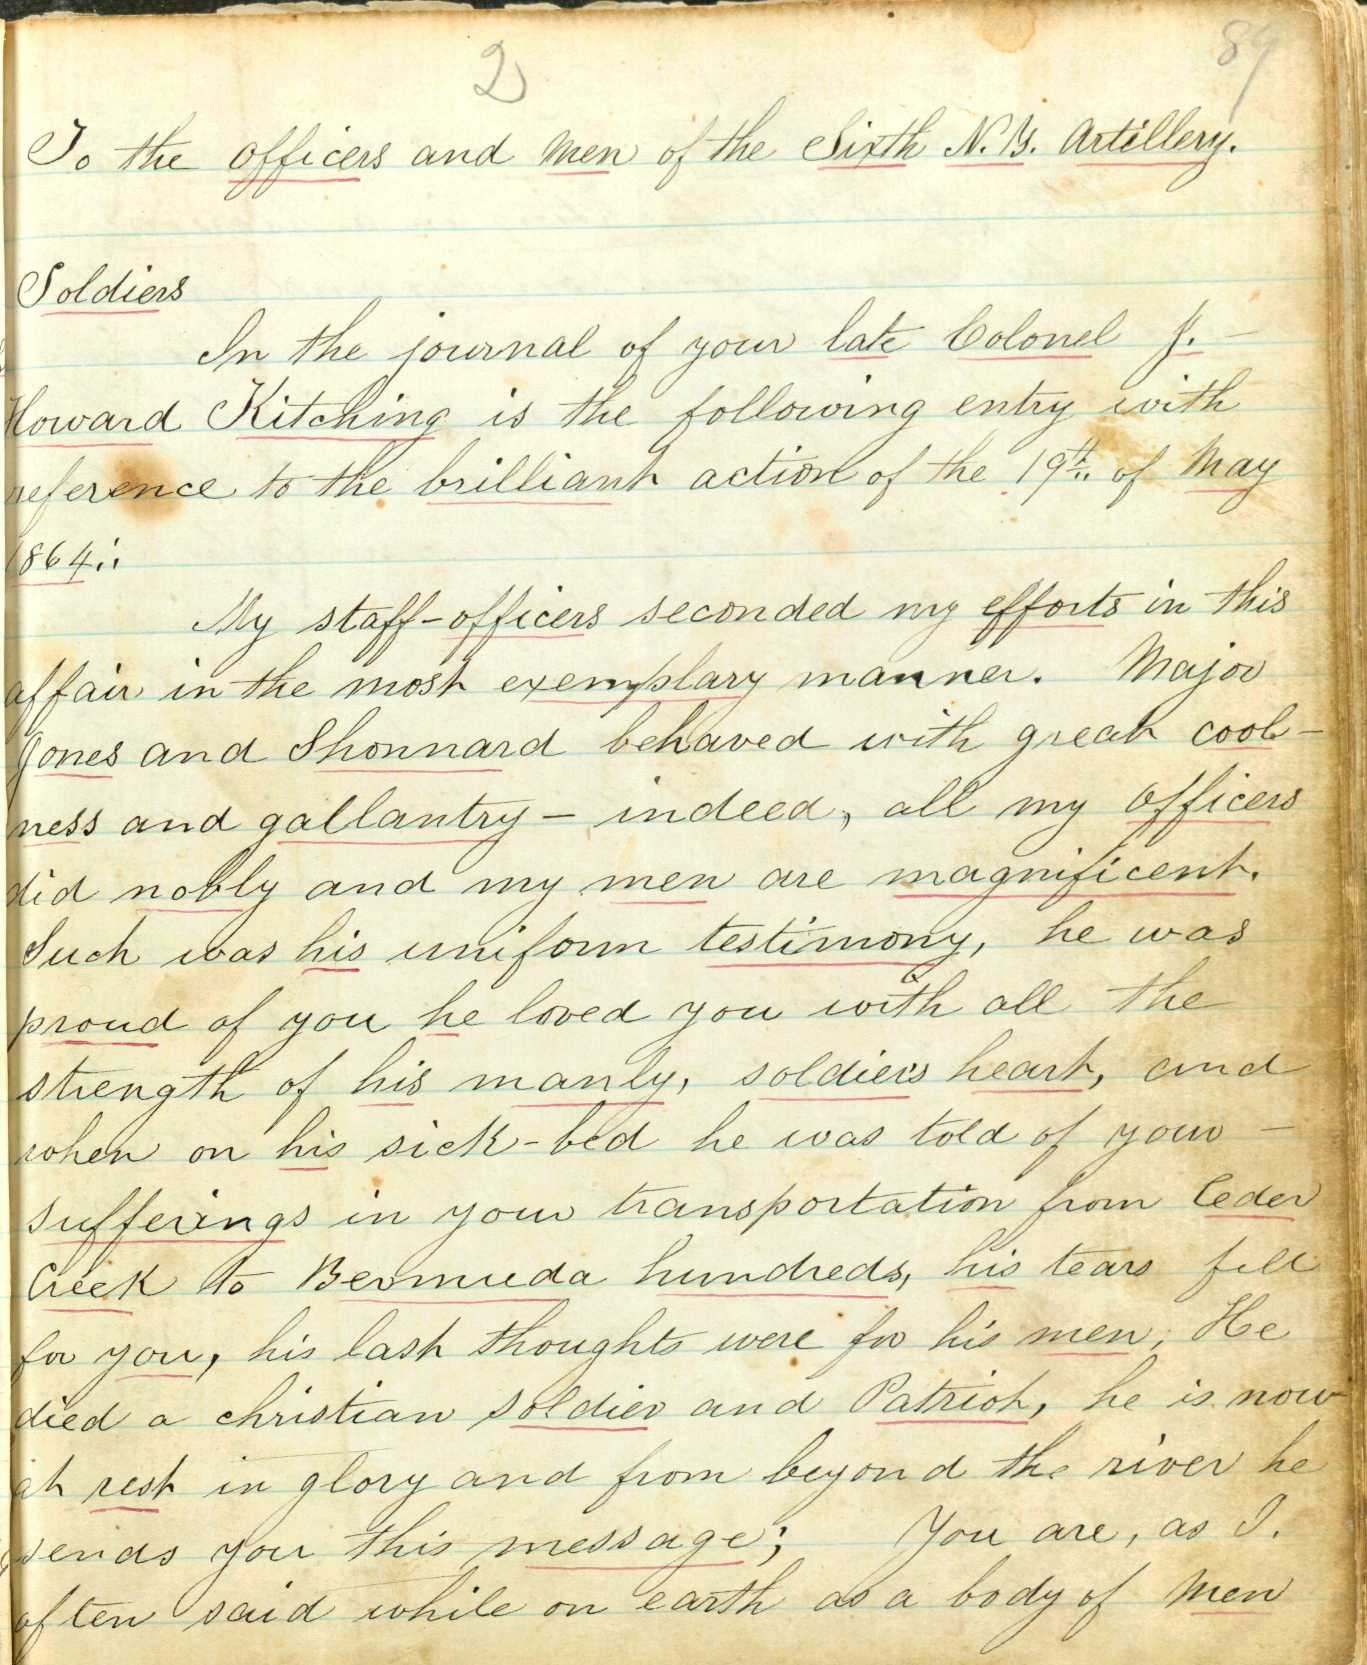 2
89
To the officers and men of the Sixth N.Y. Artillery.
Soldiers
In the journal of your late Colonel J. -
Howard Kitching is the following entry with
reference to the brilliant action of the 19th. of May
1864:
My staff-officers seconded my efforts in this
affair in the most exemplary manner. Major
Jones and Shonnard behaved with great cool-
ness and gallantry - indeed, all my officers
did nobly and my men are magnificent.
Such was his uniform testimony, he was
proud of you he loved you with all the
strength of his manly, soldiers heart, and
when on his sick-bed he was told of your -
sufferings in your transportation from Ceder
Creek to Bermuda hundreds, his tears fell
for you, his last thoughts were for his men, He
died a christian soldier and Patriot, he is now
at rest in glory and from beyond the river he
sends you this message; You are, as I.
often said while on earth as a body of men